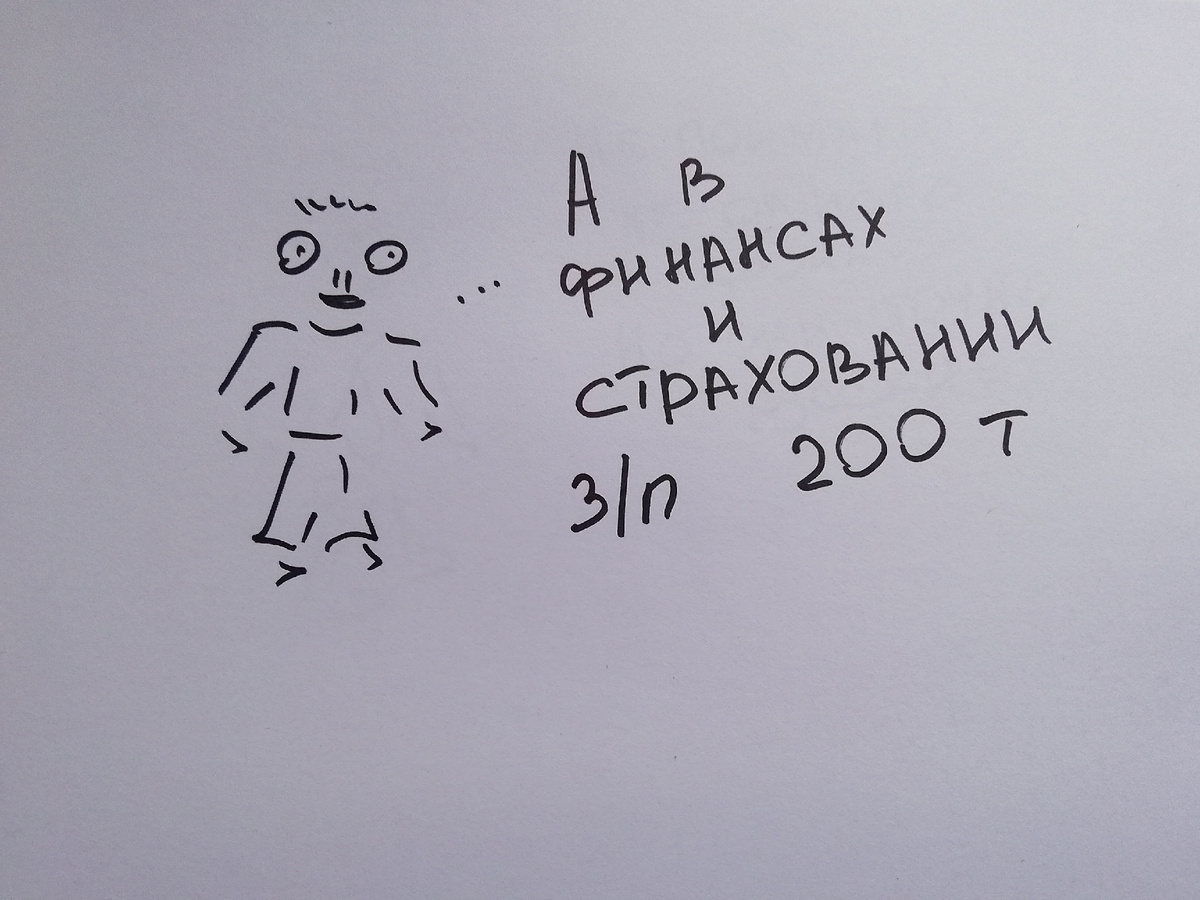 ... А В
ФИНАНСАХ
И
СТРАХОВАНИИ
З/П 200 Т